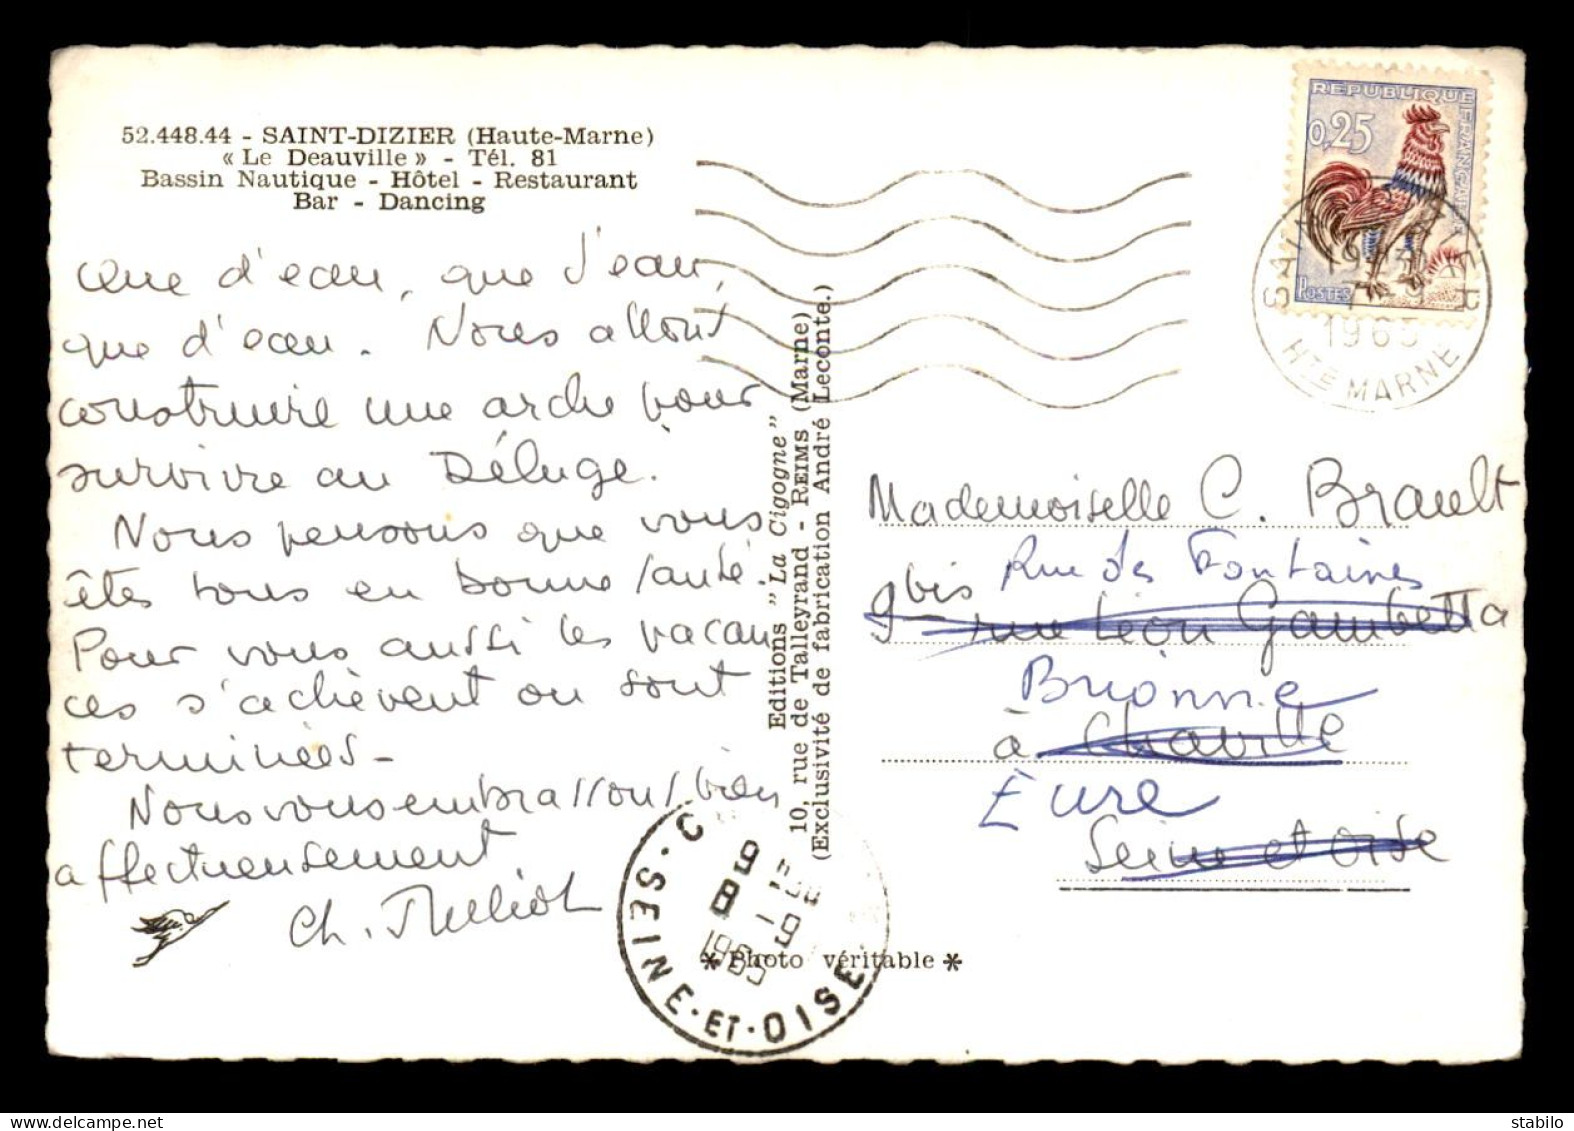 52.448.44 - SAINT-DIZIER (Haute-Marne)
« Le Deauville » - Tél. 81
Bassin Nautique - Hôtel - Restaurant
Bar - Dancing
Que d'eau, que d'eau,
que d'eau. Nous allons
construire une arche pour
survivre au Déluge.
Nous pensons que vous
êtes tous en bonne santé.
Pour vous aussi les vacan
ces s'achèvent ou sont
terminées -
Nous vous embrassons bien
affectueusement
Ch.
Editions "La Cigogne"
10, rue de Talleyrand - REIMS (Marne)
(Exclusivité de fabrication André Leconte.)
* Photo véritable *
REPUBLIQUE FRANÇAISE
0,25
POSTES
1965
HTE MARNE
Mademoiselle C. Brault
9bis Rue des Fontaines
rue Léon Gambetta
Brionne
à Chaville
Eure
Seine et Oise
1965
SEINE-ET-OISE
stabilo